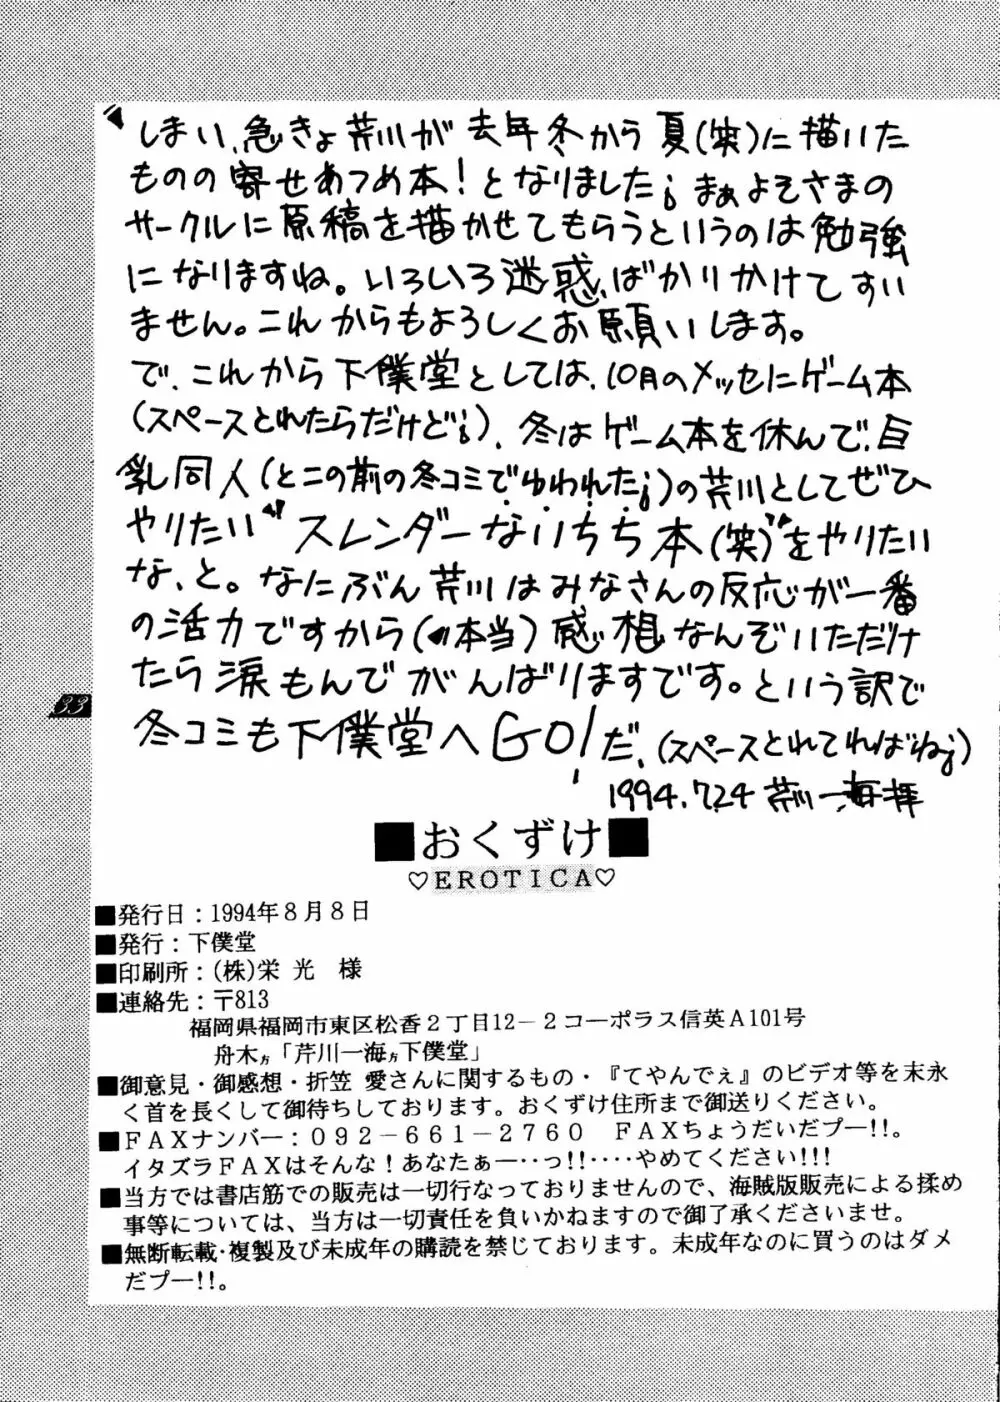 しまい、急きょ芹川が去年冬から夏(笑)に描いた
ものの寄せあつめ本!となりました¡まぁよそさまの
サークルに原稿を描かせてもらうというのは勉強
になりますね。いろいろ迷惑ばかりかけてすい
ません。これからもよろしくお願いします。
で、これから下僕堂としては、10月のメッセにゲーム本
(スペースとれたらだけど¡)、冬はゲーム本を休んで、巨
乳同人(とこの前の冬コミでゆわれた¡)の芹川としてぜひ
やりたい“スレンダーないちち本(笑)”をやりたい
な、と。なにぶん芹川はみなさんの反応が一番
の活力ですから(本当)感想なんぞいただけ
たら涙もんでがんばりますです。という訳で
冬コミも下僕堂へGO!だ、(スペースとれてればね¡)
1994.7.24 芹川一海拝
33
■おくずけ■
♡EROTICA♡
■発行日:1994年8月8日
■発行:下僕堂
■印刷所:(株)栄 光 様
■連絡先:〒813
福岡県福岡市東区松香2丁目12-2コーポラス信英A101号
舟木方「芹川一海方下僕堂」
■御意見・御感想・折笠 愛さんに関するもの・『てやんでぇ』のビデオ等を末永
く首を長くして御待ちしております。おくずけ住所まで御送りください。
■FAXナンバー:092-661-2760 FAXちょうだいだプー!!。
イタズラFAXはそんな!あなたぁー‥っ!!‥‥やめてください!!!
■当方では書店筋での販売は一切行なっておりませんので、海賊版販売による揉め
事等については、当方は一切責任を負いかねますので御了承くださいませ。
■無断転載・複製及び未成年の購読を禁じております。未成年なのに買うのはダメ
だプー!!。